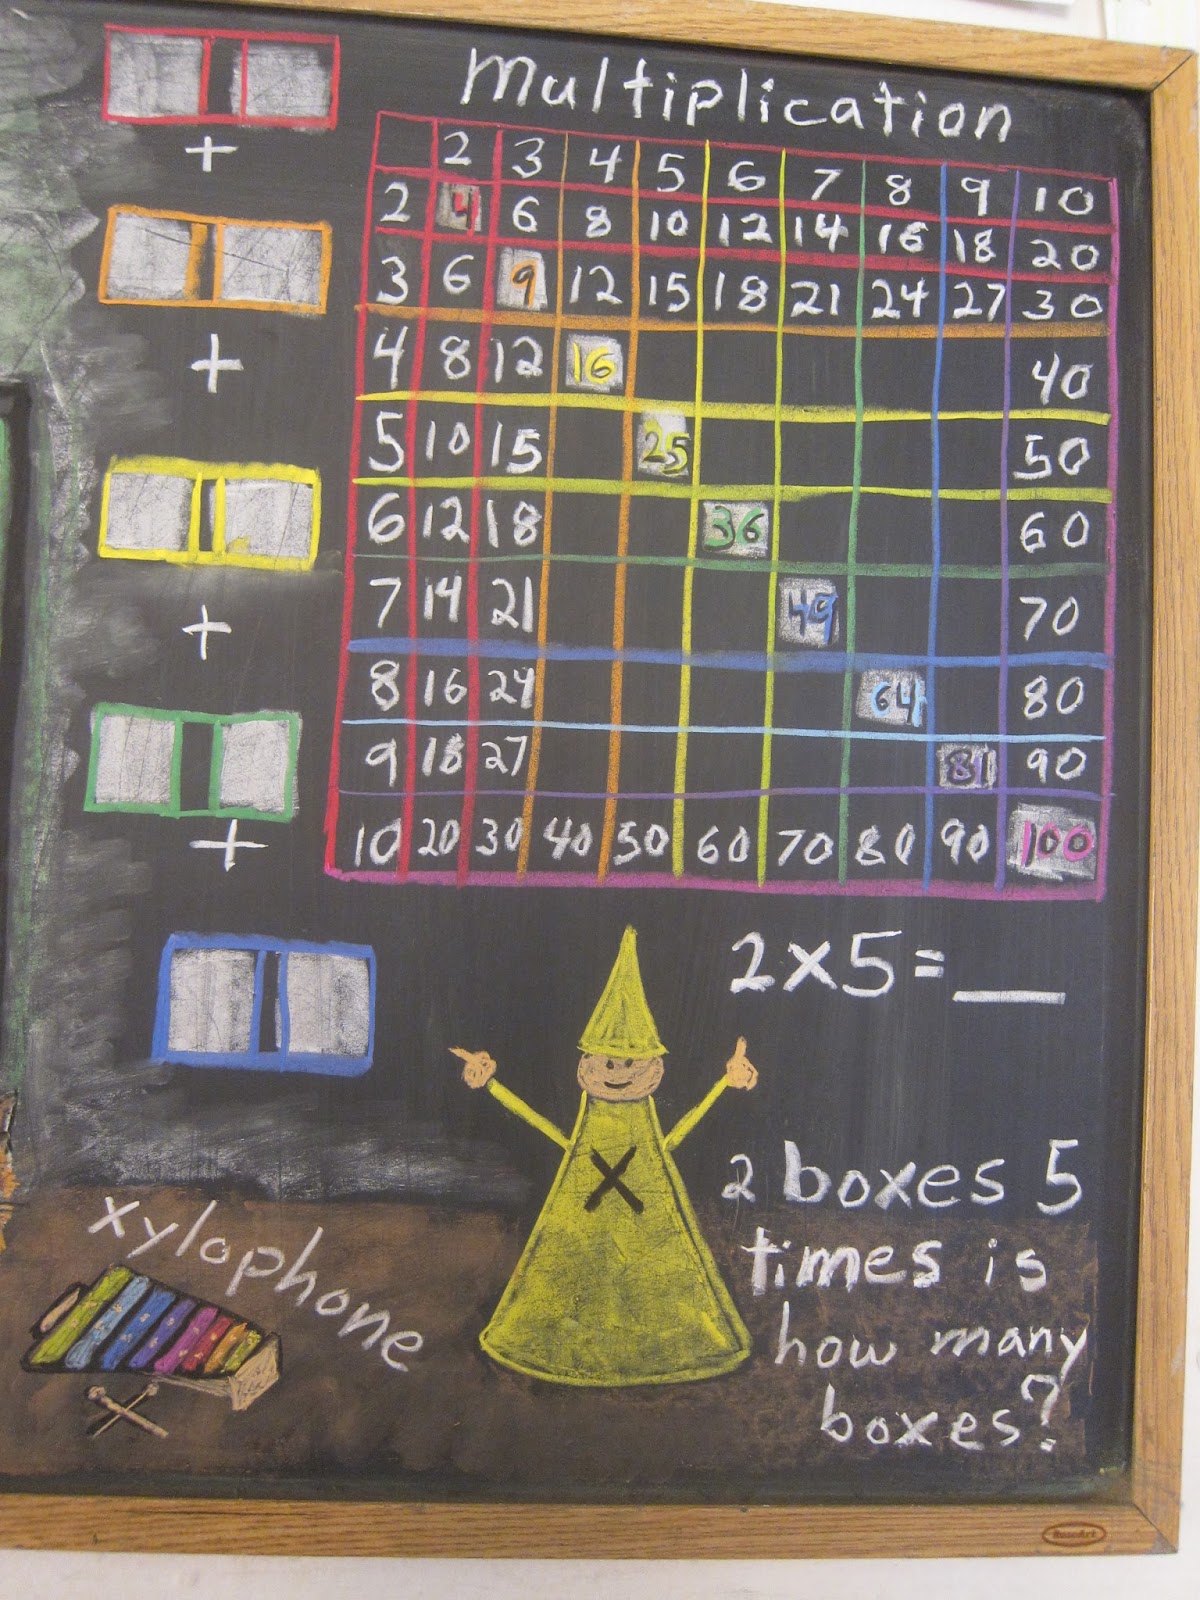 multiplication
2 3 4 5 6 7 8 9 10
2 4 6 8 10 12 14 16 18 20
3 6 9 12 15 18 21 24 27 30
4 8 12 16 40
5 10 15 25 50
6 12 18 36 60
7 14 21 49 70
8 16 24 64 80
9 18 27 81 90
10 20 30 40 50 60 70 80 90 100
+
+
+
+
2x5=__
X
2 boxes 5
times is
how many
boxes?
xylophone
RoseArt